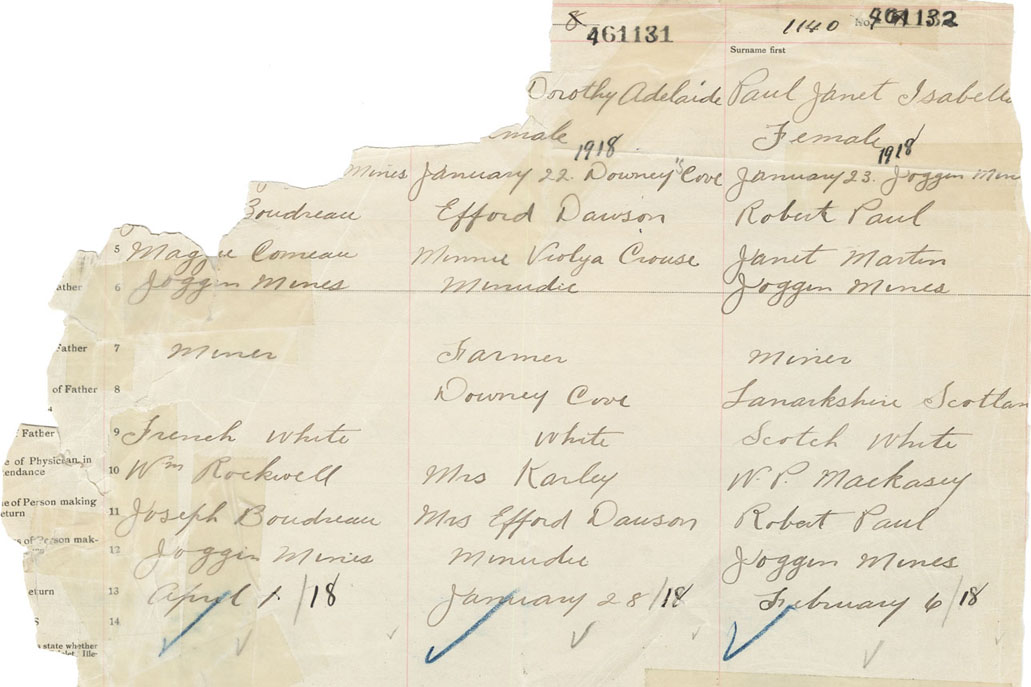 8 461131 1140 No. 461132
Surname first
Dorothy Adelaide Paul Janet Isabelle
emale Female
1918 1918
Mines January 22. Downey's Cove January 23. Joggin Min
Boudreau Efford Dawson Robert Paul
5 Maggie Comeau Minnie Violya Crouse Janet Martin
ather 6 Joggin Mines Minudie Joggin Mines
Father 7 Miner Farmer Miner
of Father 8 Downey Cove Lanarkshire Scotlan
Father 9 French White White Scotch White
e of Physician in
endance 10 Wm Rockwell Mrs Karley W. P. Mackasey
e of Person making
eturn 11 Joseph Boudreau Mrs Efford Dawson Robert Paul
s of Person mak-
12 Joggin Mines Minudie Joggin Mines
eturn 13 April 1/18 January 28/18 February 6/18
14
state whether